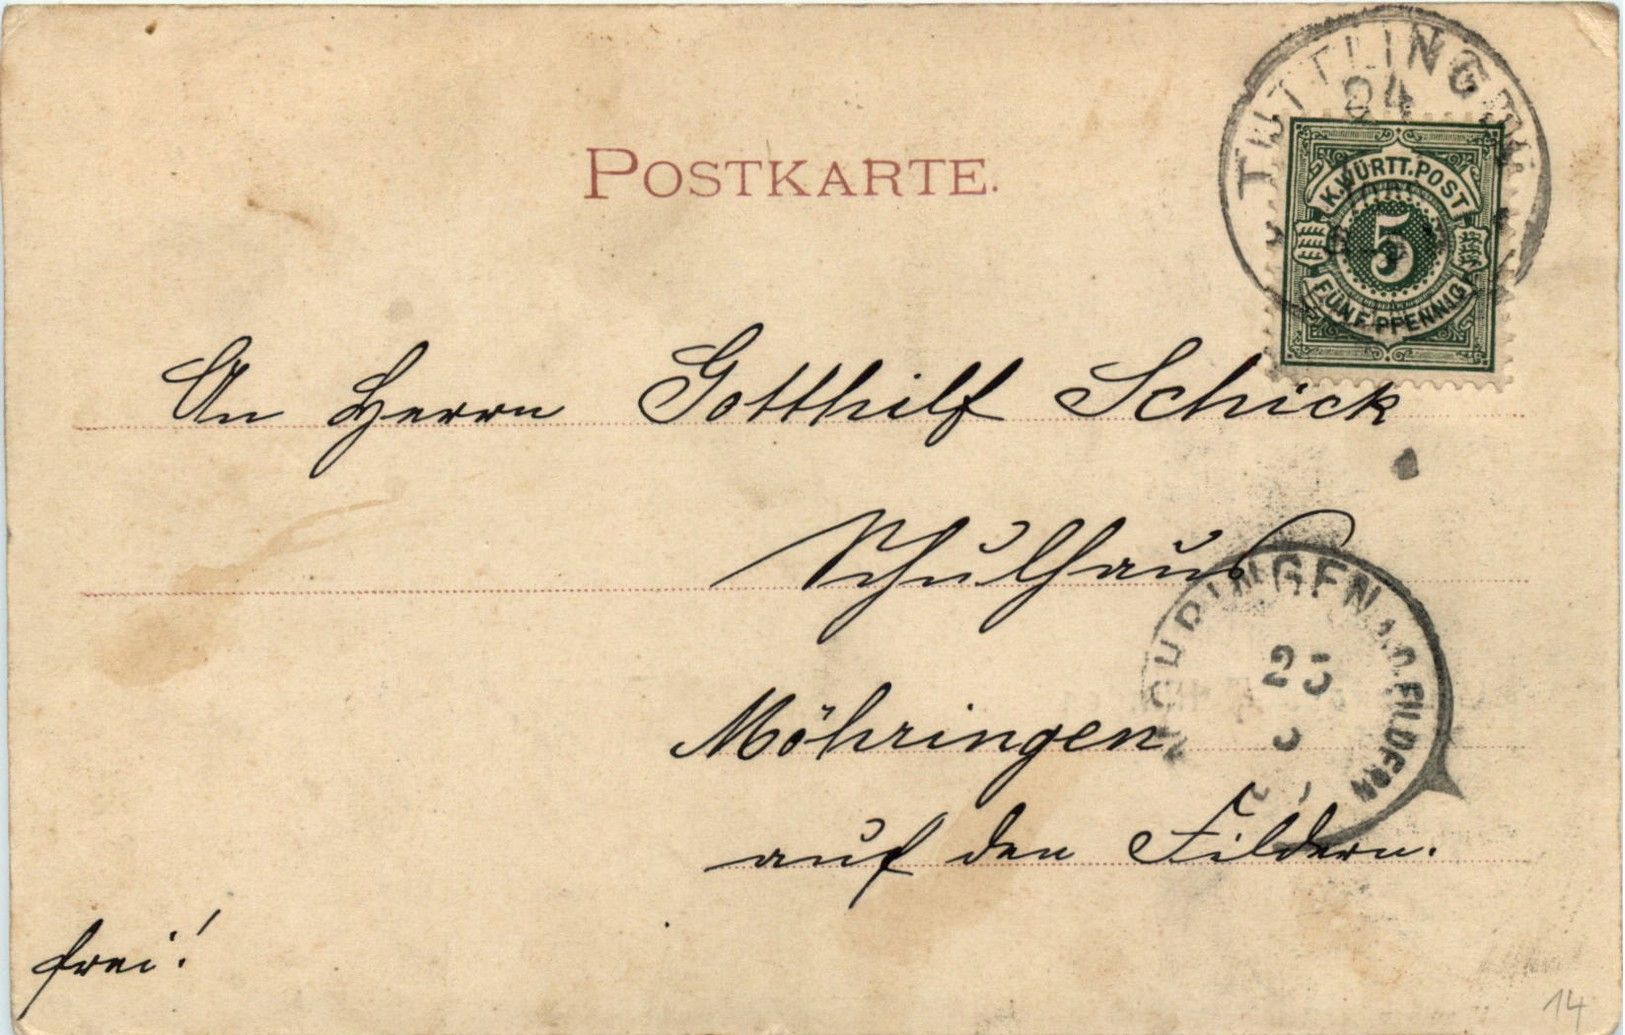 POSTKARTE.
TUTTLINGEN
24
K.WÜRTT.POST
5
FÜNF PFENNIG
An Herrn Gotthilf Schick
Schulhaus
Möhringen
auf den Fildern.
MÖHRINGEN A.D.FILDERN
25
frei!
14